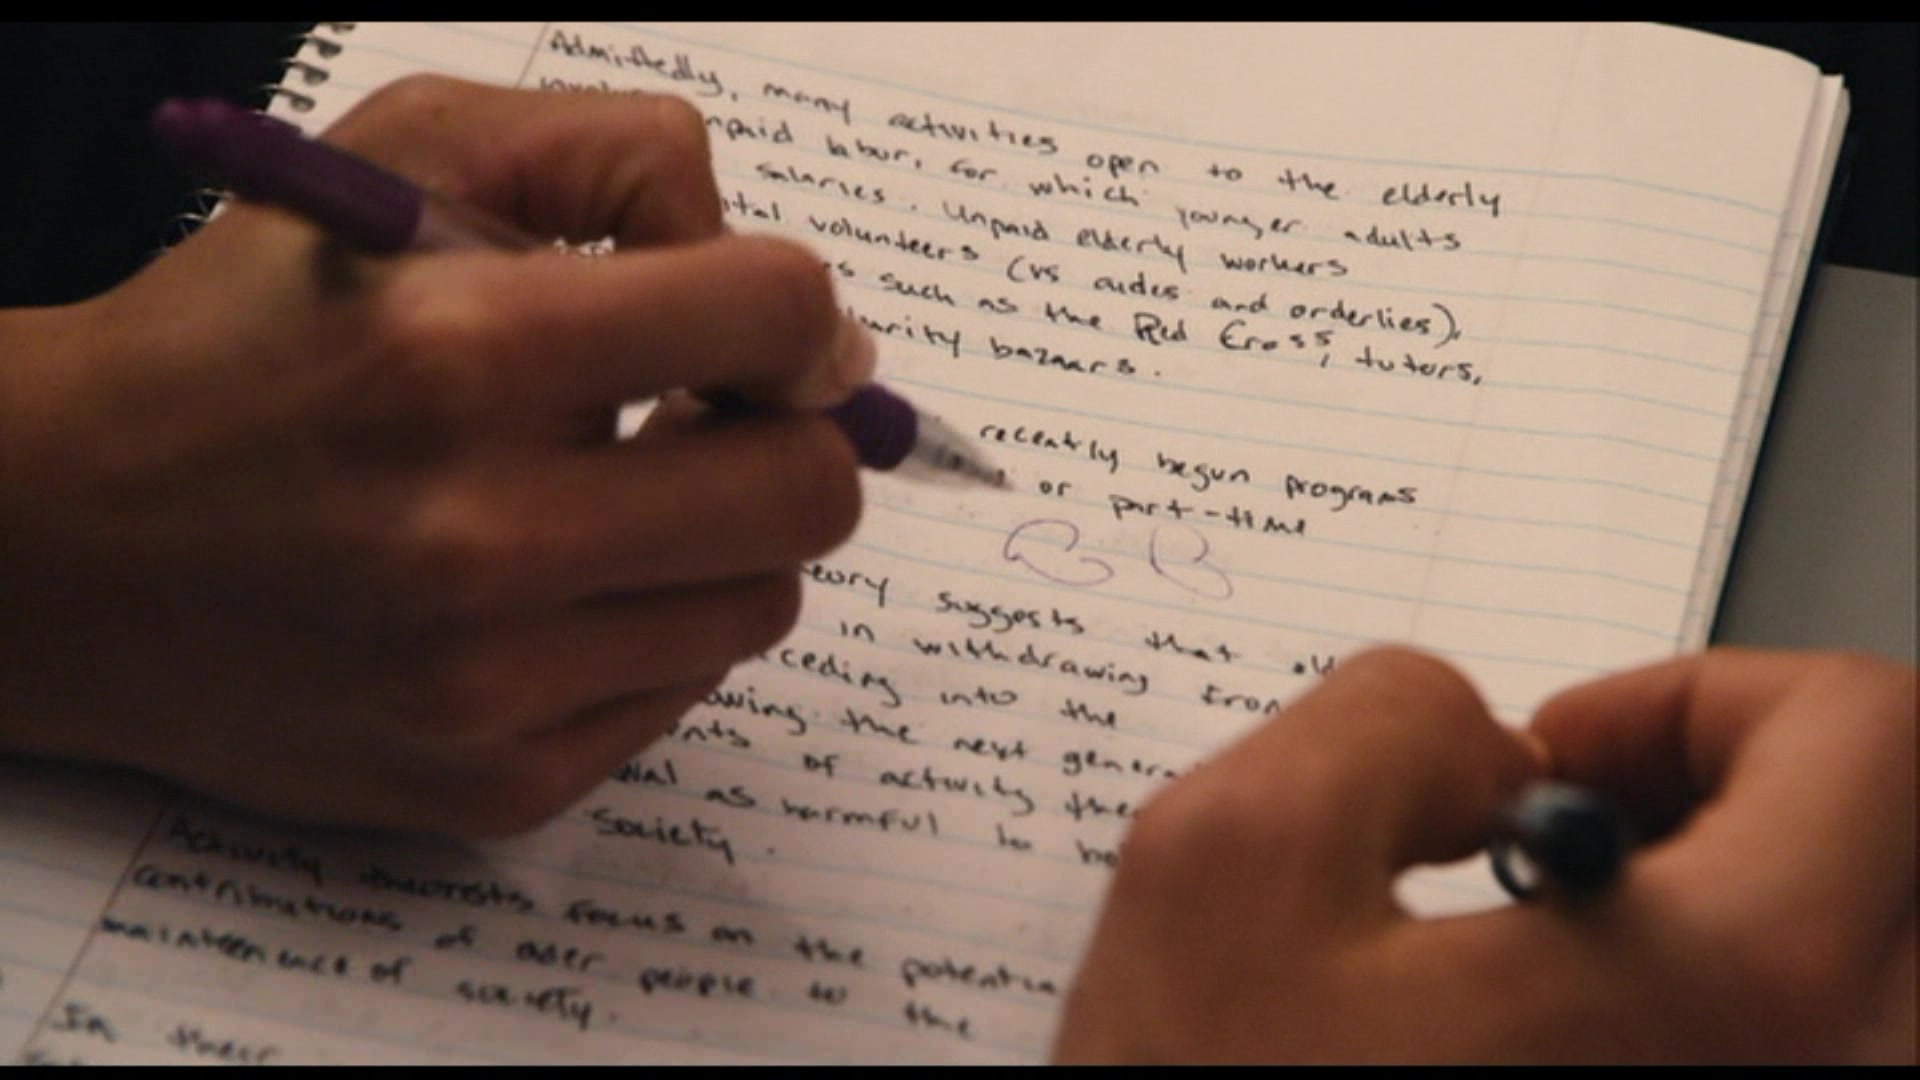 Admittedly, many activities open to the elderly
unpaid labor, for which younger adults
salaries. Unpaid elderly workers
volunteers (vs aides and orderlies),
such as the Red Cross, tutors,
charity bazaars.
recently begun programs
or part-time
theory suggests that
in withdrawing from
into the
the next
of activity
as harmful to
society.
Activity theorists focus on the potential
contributions of older people to the
maintenence of society.
In their